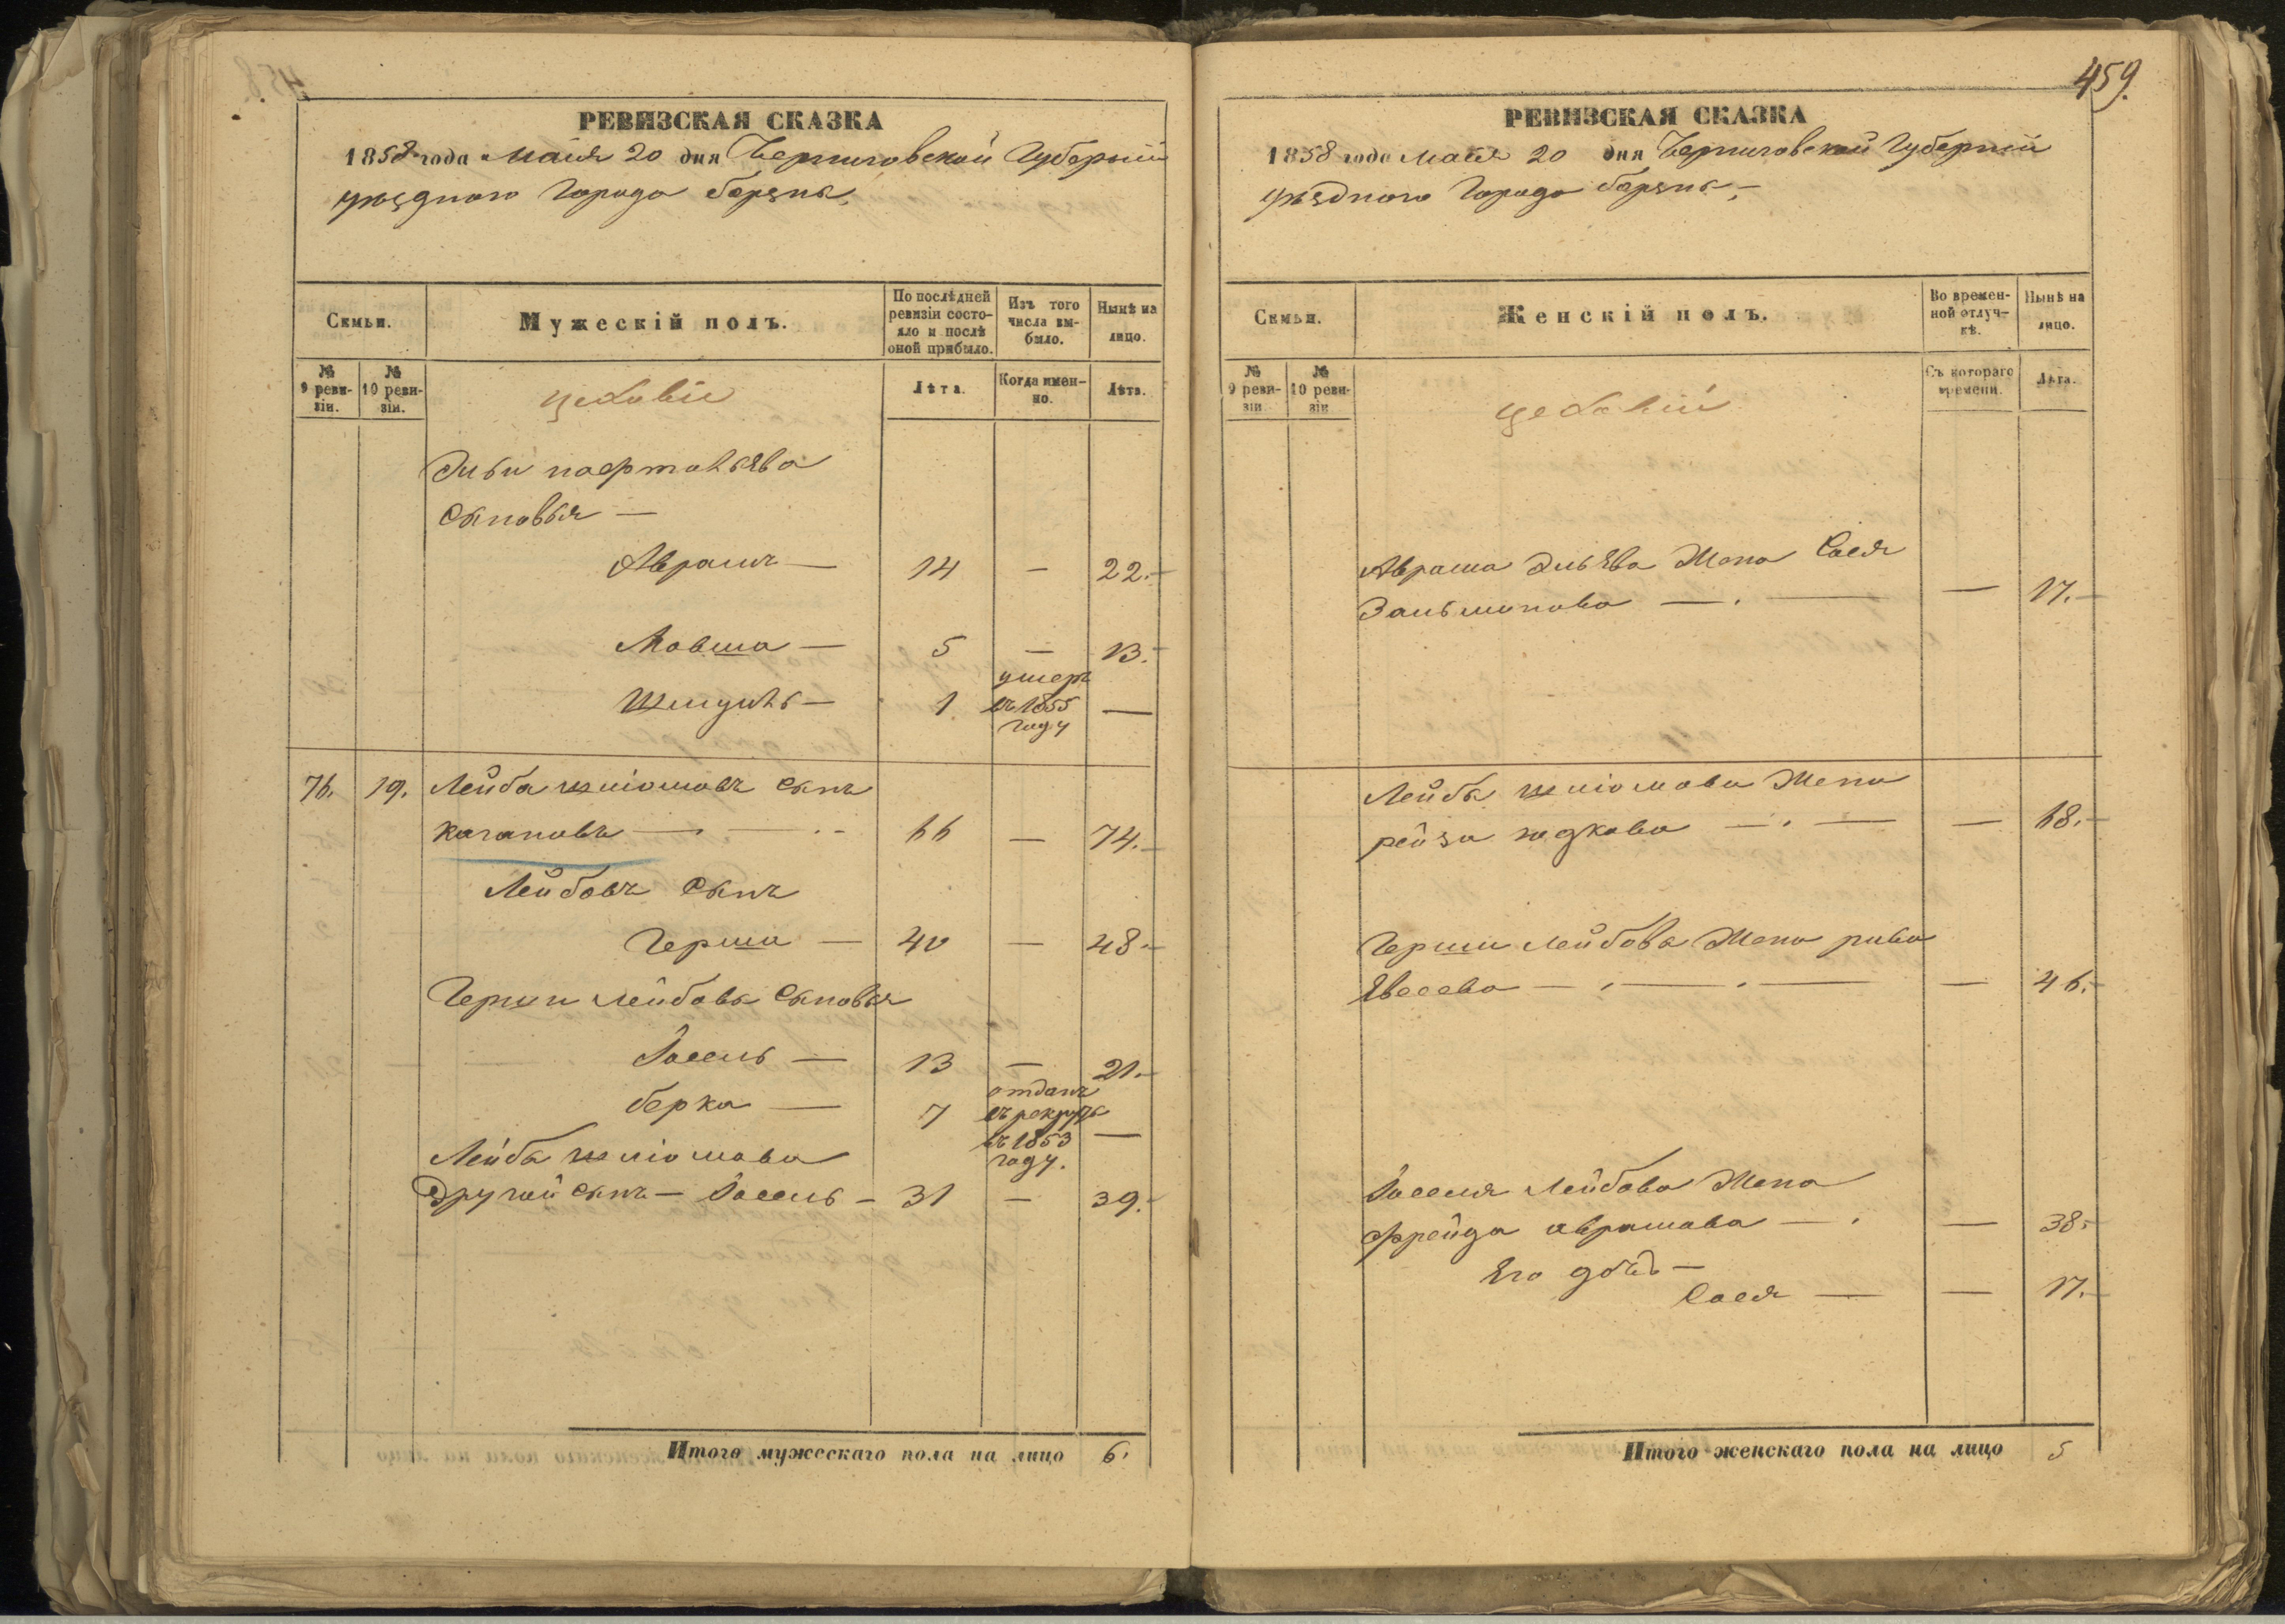 РЕВИЗСКАЯ СКАЗКА
1858 года Маія 20 дня Черниговской Губерніи
уѣзднаго Города Борзны,
Семьи.
Мужескій полъ.
По послѣдней ревизіи состояло и послѣ оной прибыло.
Изъ того числа выбыло.
Нынѣ на лицо.
№ 9 ревизіи.
№ 10 ревизіи.
Лѣта.
Когда именно.
Лѣта.
цеховіе
Сыновья —
Аврамъ — 14 — 22.
Мовша — 5 — 13.
Шмуиль — 1 умеръ въ 1855 году —
76. 19. Лейба Шліомовъ Сынъ
Кагановъ — 66 — 74.
Лейбовъ Сынъ
Герша — 40 — 48
Герши Лейбова Сыновья
Іосель — 13 — 21.
берка — 7 отданъ въ рекруты въ 1853 году. —
Лейбы Шліомова
Другой Сынъ — Іосель — 31 — 39.
Итого мужескаго пола на лицо 6.
459.
РЕВИЗСКАЯ СКАЗКА
1858 года Маія 20 дня Черниговской Губерніи
уѣзднаго Города Борзны,
Семьи.
Женскій полъ.
Во временной отлучкѣ.
Нынѣ на лицо.
№ 9 ревизіи
№ 10 ревизіи
Съ котораго времени.
Лѣта.
цеховіи
Аврама Эльева Жена Сося
Зальманова — — 17.
Лейбы Шліомова Жена
рейза юдкова — — 68.
Герши Лейбова Жена рива
Евсеева — — 46.
Іоселя Лейбова Жена
Фрейда аврамова — — 38.
Его дочь —
Сося — — 17.
Итого женскаго пола на лицо 5